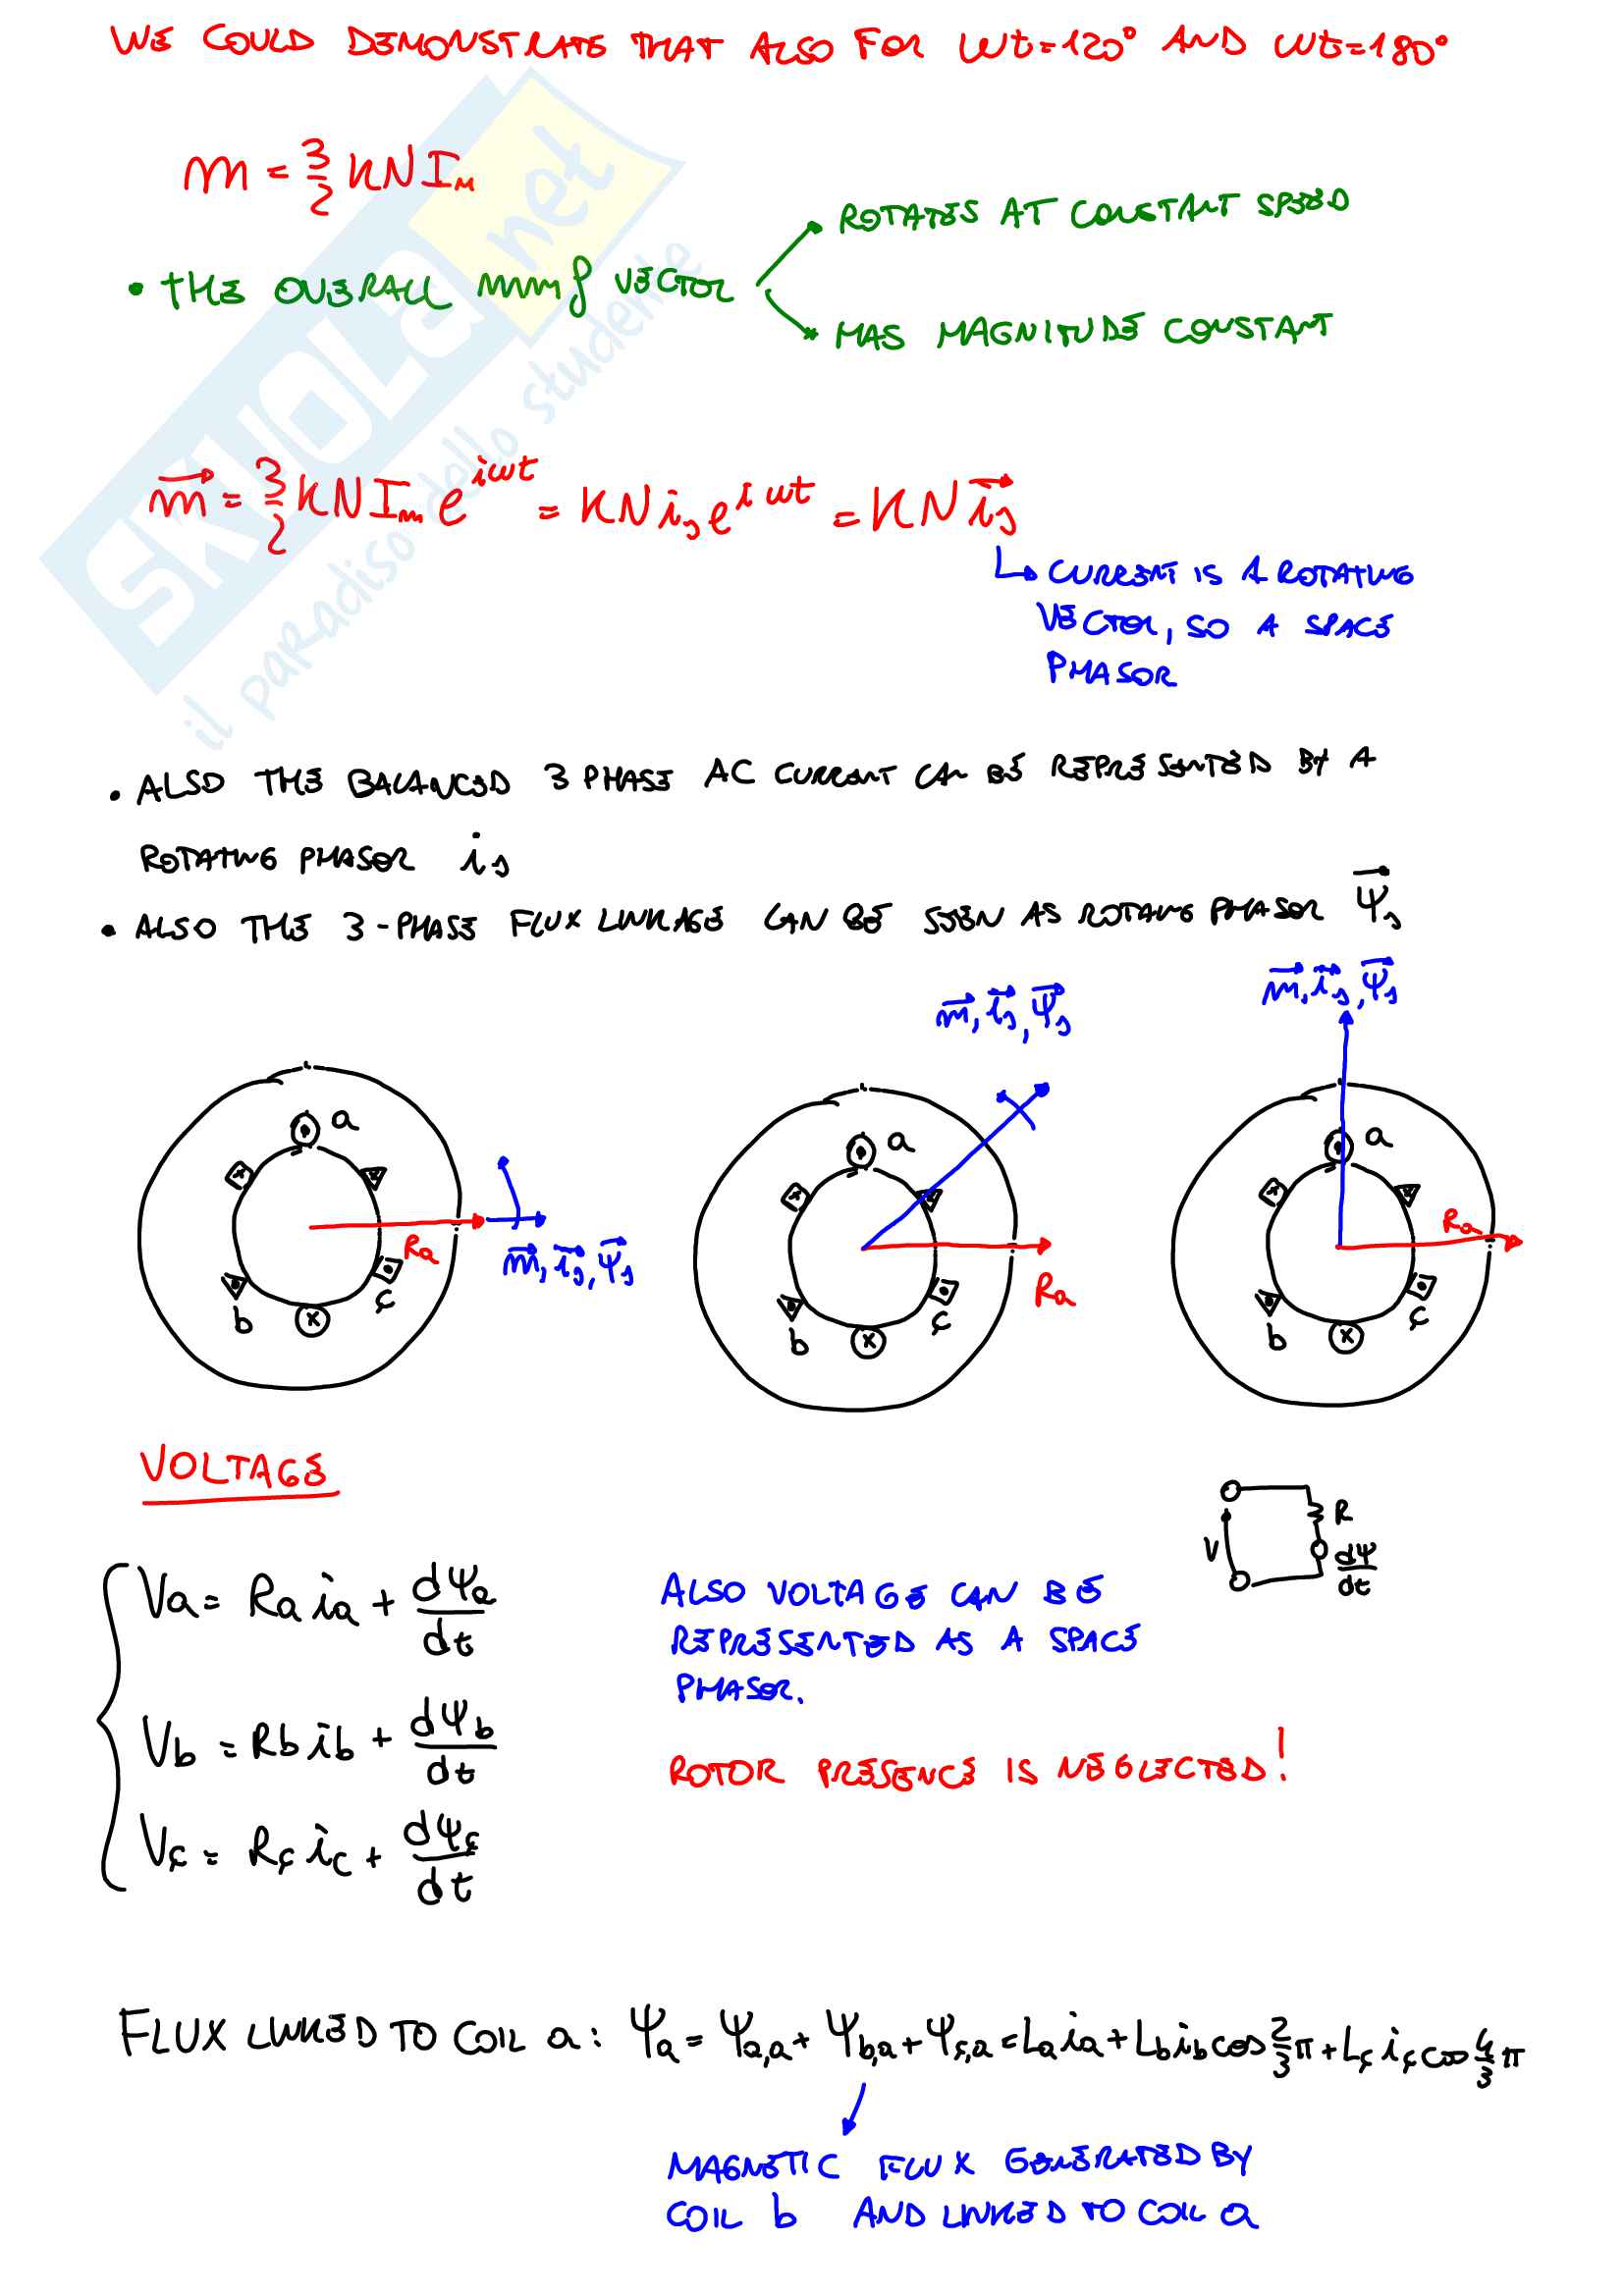 WE COULD DEMONSTRATE THAT ALSO FOR ωt=120° AND ωt=180°
m = 3/2 KNIm
• THE OVERALL mmf VECTOR
ROTATES AT CONSTANT SPEED
HAS MAGNITUDE CONSTANT
m⃗ = 3/2 KNIm e^iωt = KN is e^iωt = KN i⃗s
CURRENT IS A ROTATING
VECTOR, SO A SPACE
PHASOR
• ALSO THE BALANCED 3 PHASE AC CURRENT CAN BE REPRESENTED BY A
ROTATING PHASOR is
• ALSO THE 3-PHASE FLUX LINKAGE CAN BE SEEN AS ROTATING PHASOR Ψ⃗s
m⃗, i⃗s, Ψ⃗s
m⃗, i⃗s, Ψ⃗s
a
a
a
Ra
m⃗, i⃗s, Ψ⃗s
Ra
Ra
b
c
b
c
b
c
VOLTAGE
R
V
dΨ/dt
Va = Ra ia + dΨa/dt
ALSO VOLTAGE CAN BE
REPRESENTED AS A SPACE
PHASOR.
Vb = Rb ib + dΨb/dt
ROTOR PRESENCE IS NEGLECTED!
Vc = Rc ic + dΨc/dt
FLUX LINKED TO COIL a: Ψa = Ψa,a + Ψb,a + Ψc,a = La ia + Lb ib cos 2/3 π + Lc ic cos 4/3 π
MAGNETIC FLUX GENERATED BY
COIL b AND LINKED TO COIL a
SKUOLA.net
il paradiso dello studente